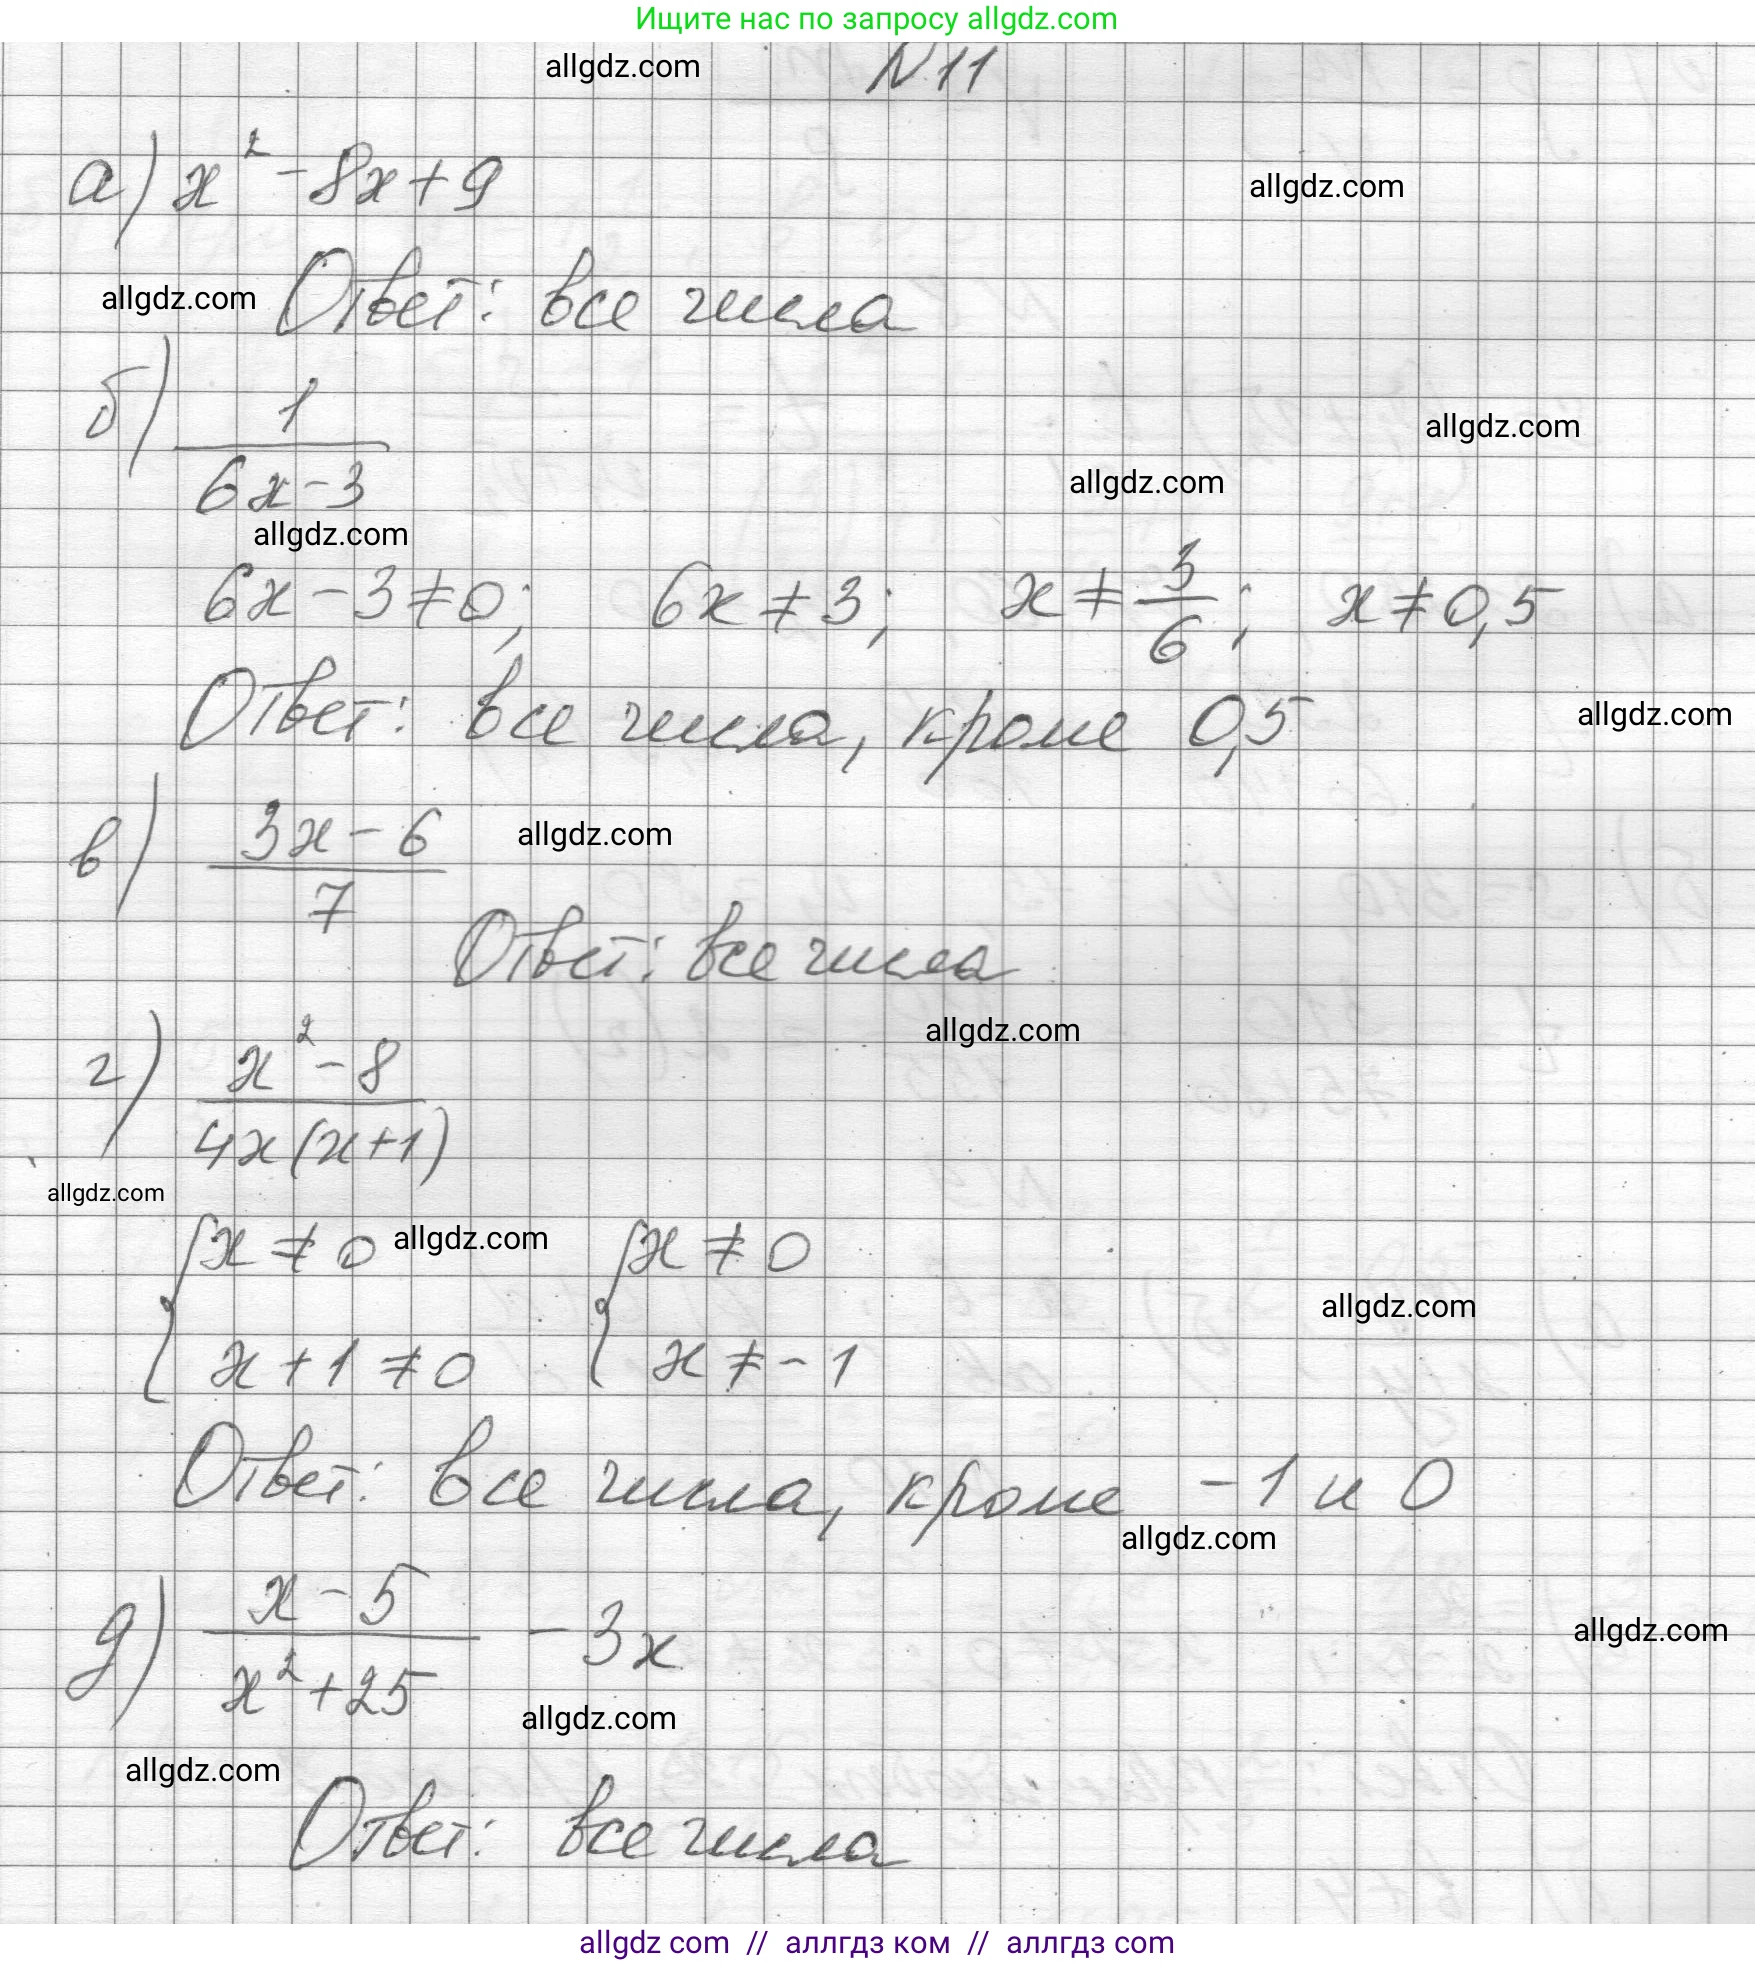 Ищите нас по запросу allgdz.com
allgdz.com
N 11
а) x² - 8x + 9
allgdz.com
allgdz.com
Ответ: все числа
б) 1/(6x - 3)
allgdz.com
allgdz.com
allgdz.com
6x - 3 ≠ 0; 6x ≠ 3; x ≠ 3/6; x ≠ 0,5
Ответ: все числа, кроме 0,5
allgdz.com
в) (3x - 6)/7
allgdz.com
Ответ: все числа
allgdz.com
г) (x² - 8)/(4x(x + 1))
allgdz.com
{x ≠ 0 {x ≠ 0
allgdz.com
allgdz.com
x + 1 ≠ 0 x ≠ -1
Ответ: все числа, кроме -1 и 0
allgdz.com
д) (x - 5)/(x² + 25) - 3x
allgdz.com
allgdz.com
allgdz.com
Ответ: все числа
allgdz com // аллгдз ком // аллгдз com